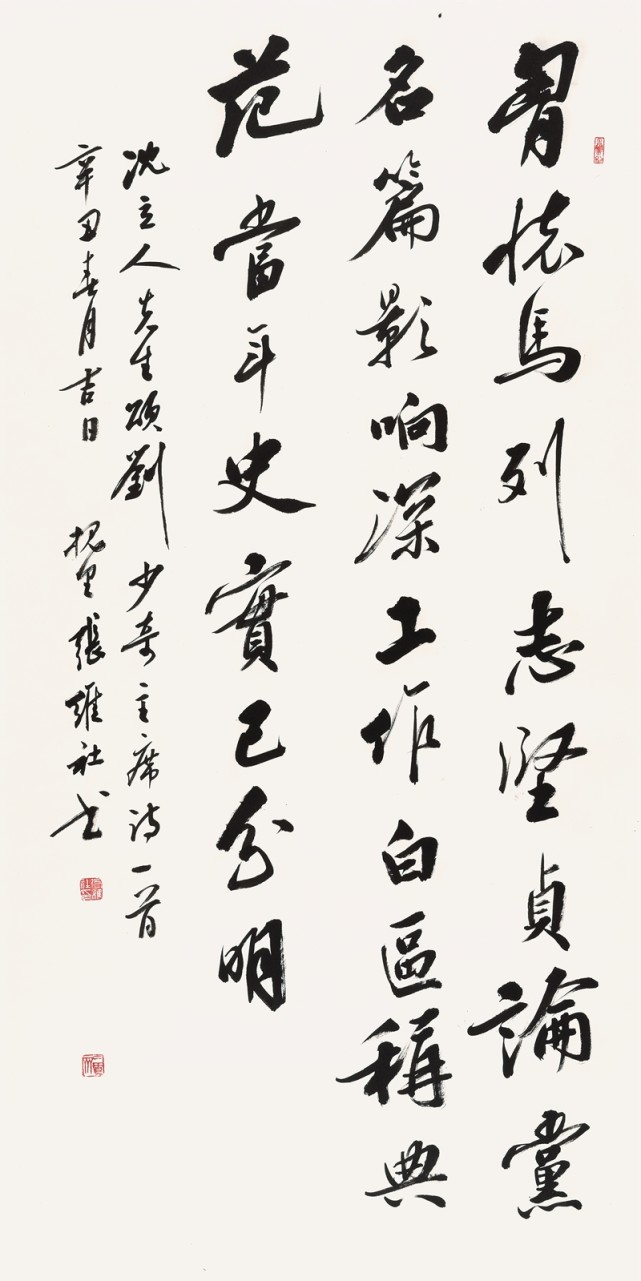 胷怀馬列志堅貞論黨
名篇影响深工作白區稱典
范當年史實已分明
沈立人先生頌劉少奇主席诗一首
辛丑春月吉日 槐里張維社书